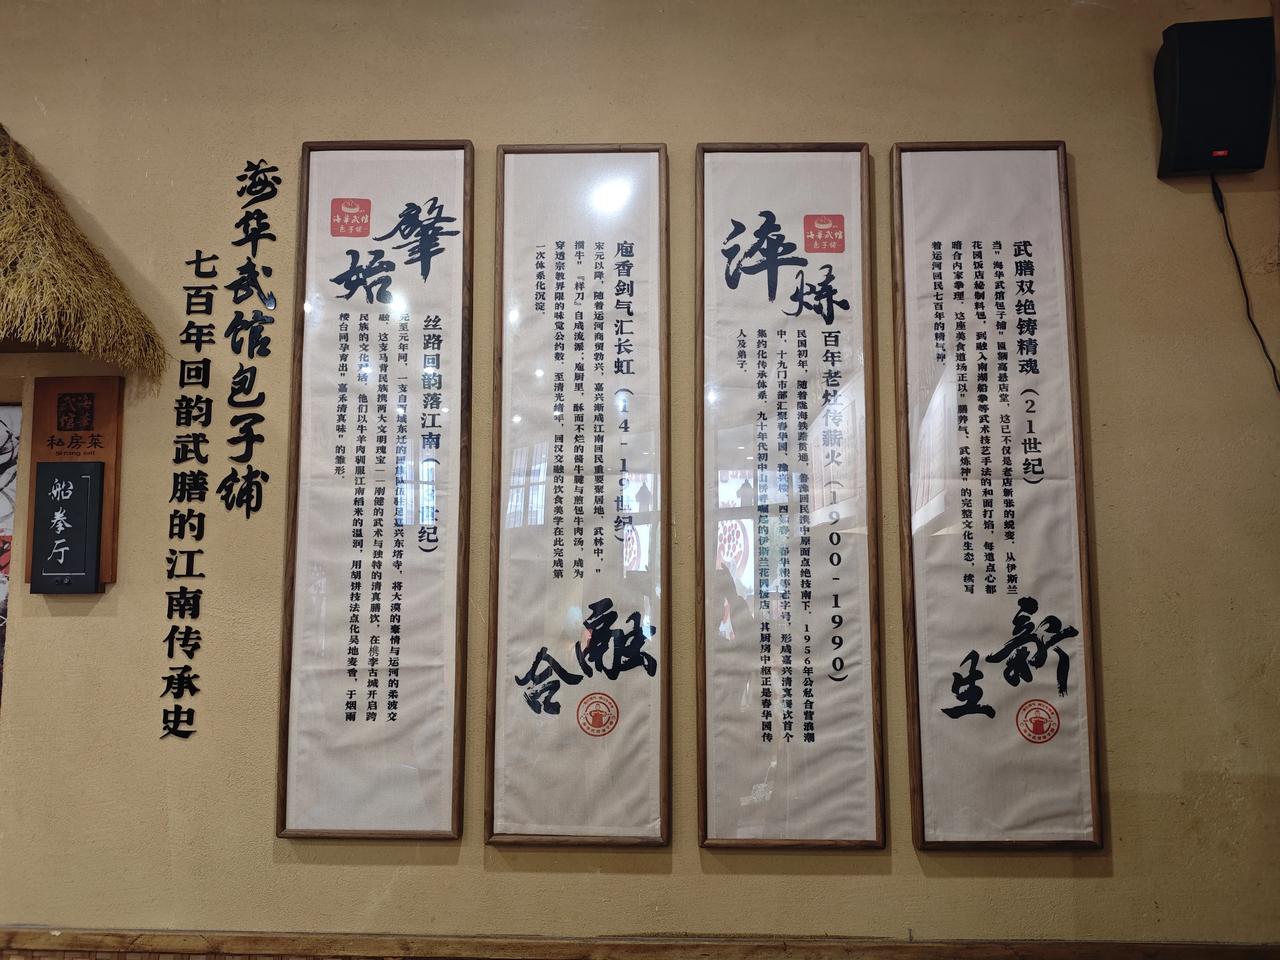 海华武馆包子铺
七百年回韵武膳的江南传承史
海华武馆
私房菜
Si fang cai
船拳厅
海华武馆
包子铺
肇始
丝路回韵落江南（
世纪）
元至元年间，一支自西域东迁的回族队伍驻足嘉兴东塔寺，将大漠的豪情与运河的柔波交
融。这支马背民族携两大文明瑰宝——刚健的武术与独特的清真膳饮，在槜李古城开启跨
民族的文化对话。他们以牛羊肉驯服江南稻米的温润，用胡饼技法点化吴地麦香，于烟雨
楼台间孕育出"嘉禾清真味"的雏形。
庖香剑气汇长虹（14-19世纪）
宋元以降，随着运河商贸勃兴，嘉兴渐成江南回民重要聚居地。武林中，"
掼牛""样刀"自成流派；庖厨里，酥而不烂的酱牛腱与煎包牛肉汤，成为
穿透宗教界限的味觉公约数。至清光绪年，回汉交融的饮食美学在此完成第
一次体系化沉淀。
融合
海华武馆
包子铺
淬炼
百年老灶传薪火（1900-1990）
民国初年，随着陇海铁路贯通，鲁豫回民携中原面点绝技南下。1956年公私合营浪潮
中，十九门市部汇聚春华园、豫兴楼、四如春、春华楼等老字号，形成嘉兴清真餐饮首个
集约化传承体系。九十年代初中山桥畔崛起的伊斯兰花园饭店，其厨房中枢正是春华园传
人及弟子。
武膳双绝铸精魂（21世纪）
当"海华武馆包子铺"匾额高悬店堂，这已不仅是老店新张的蜕变。从伊斯兰
花园饭店秘制料包，到融入南湖船拳等武术技艺手法的和面打馅，每道点心都
暗合内家拳理。这座美食道场正以"膳养气，武炼神"的完整文化生态，续写
着运河回民七百年的精气神。
新生